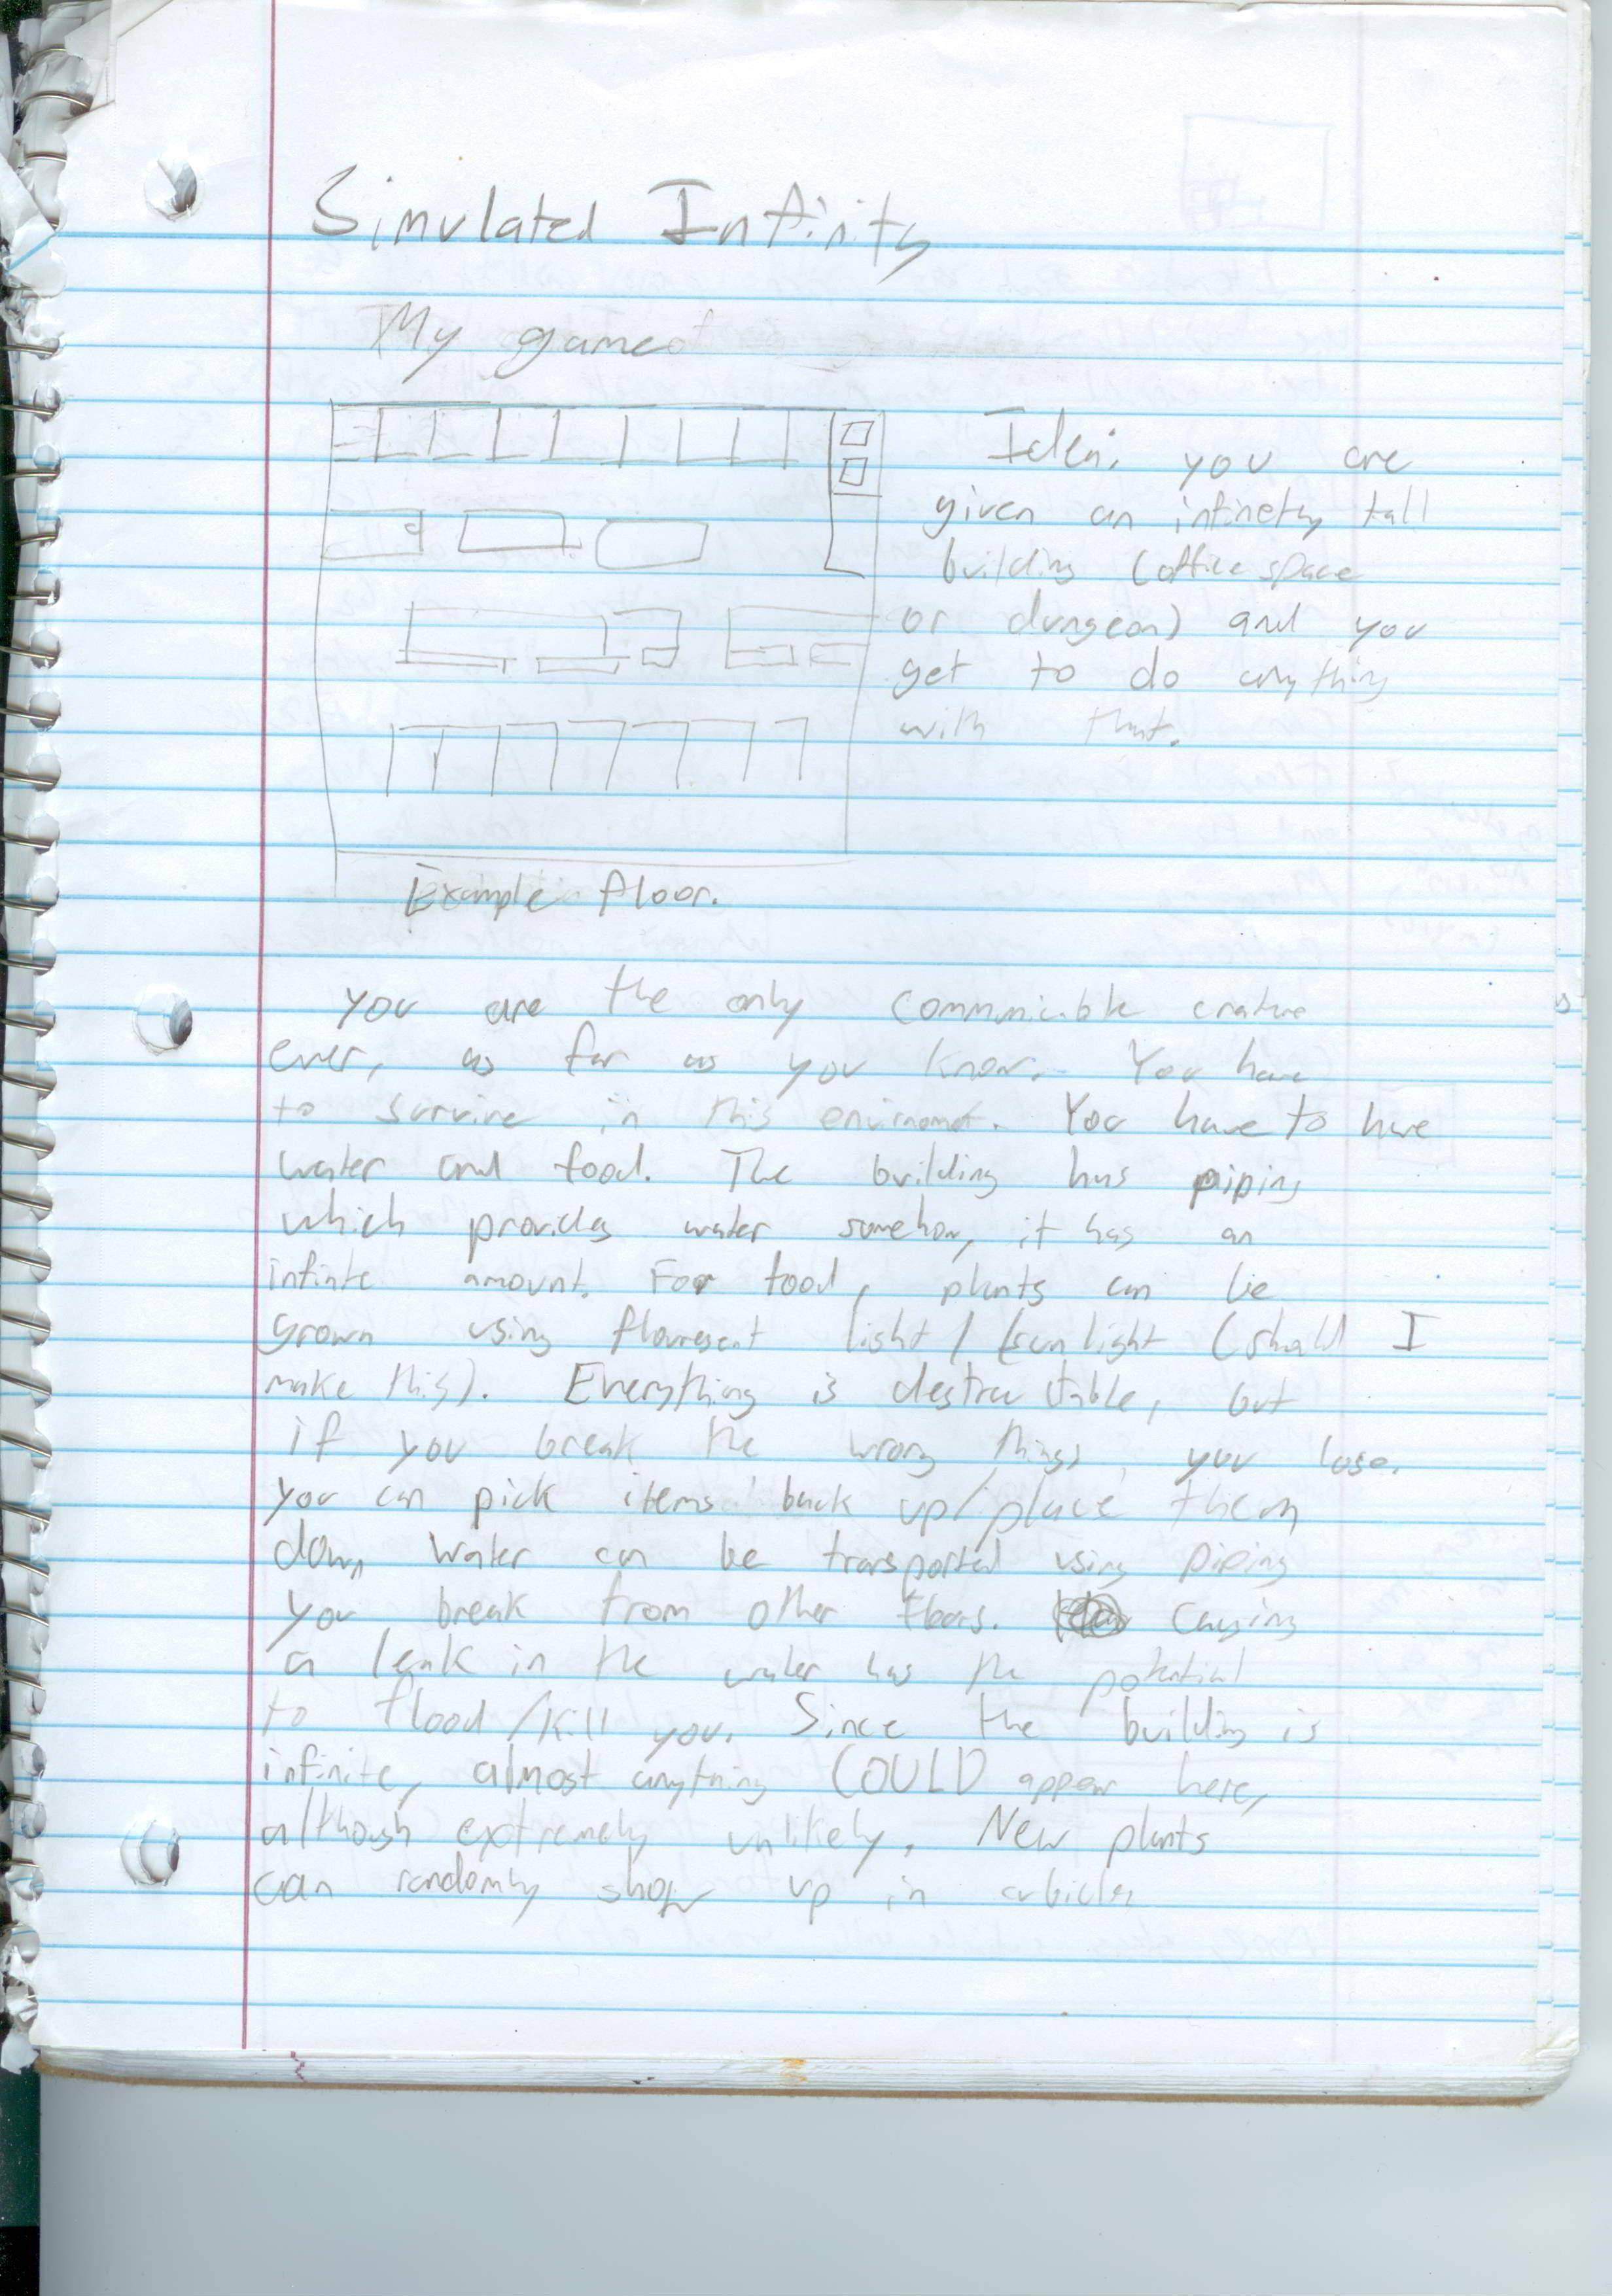 Simulated Infinity
My game
Idea: you are
given an infinetly tall
building (office space
or dungeon) and you
get to do anything
with that.
Example floor.
You are the only communicable creature
ever, as far as you know. You have
to survive in this . You have to have
water and food. The building has piping
which provides water somehow, it has an
infinte amount. For food, plants can be
grown using light / sunlight (shall I
make this). Everything is destructable, but
if you break the wrong things, you lose.
you can pick items back up/place them
down water can be transported using piping
you break from other floors.
a leak in the water has the potential
to flood/kill you. Since the building is
infinite, almost anything COULD appear here,
although extremely unlikely. New plants
can randomly show up in cubicles